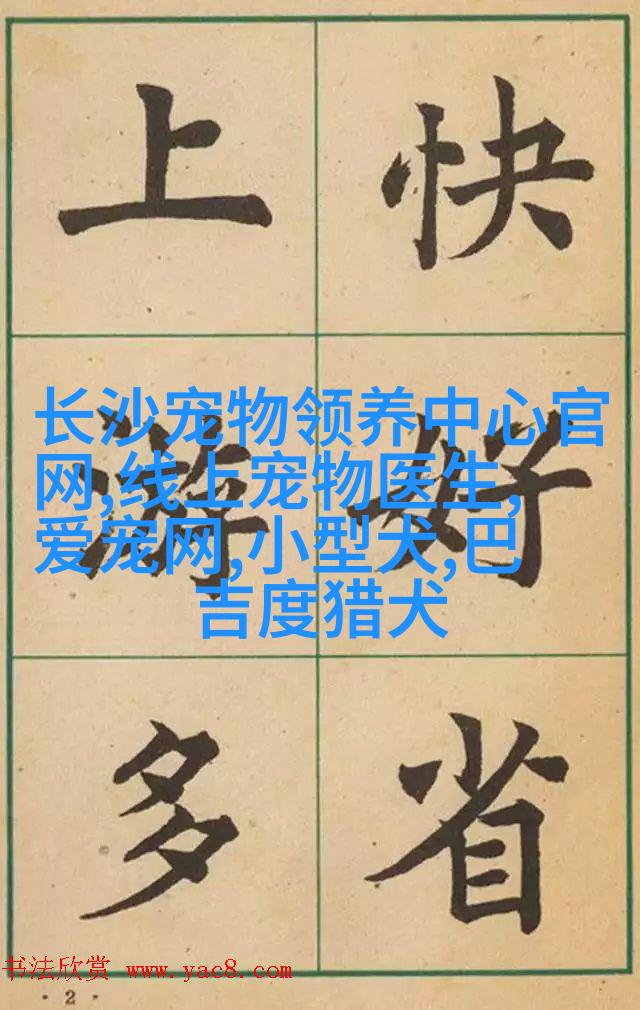 上游多
快好省
长沙宠物领养中心官
网,线上宠物医生,
爱宠网,小型犬,巴
吉度猎犬
书法欣赏 www.yac8.com
· 2 ·